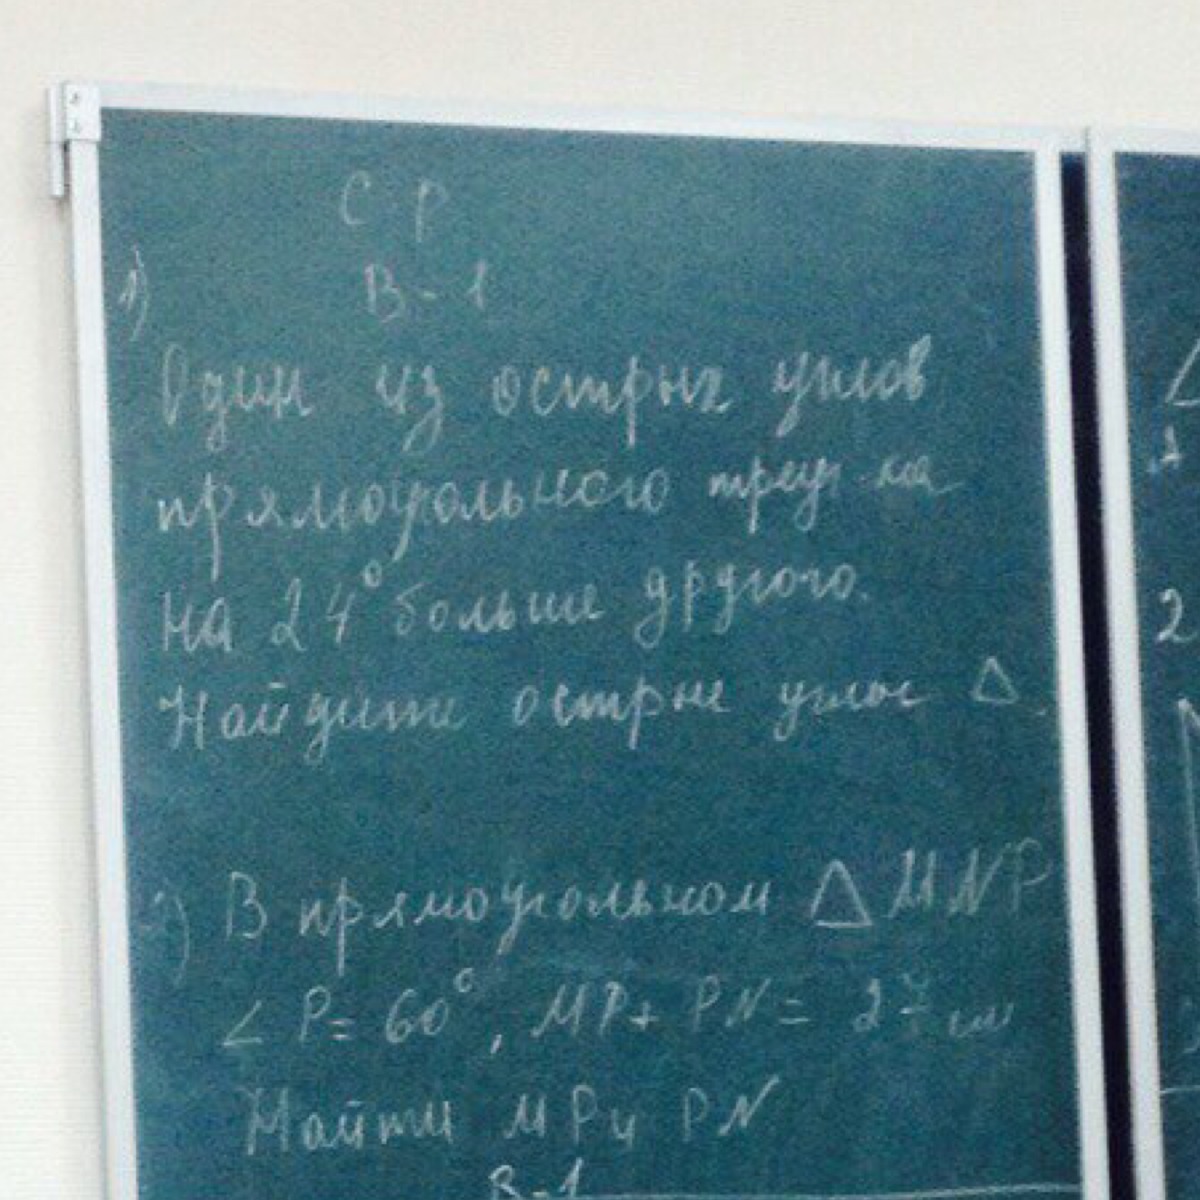 С Р
1) В-1
Один из острых углов
прямоугольного треуг-ка
на 24° больше другого.
Найдите острые углы Δ.
) В прямоугольном Δ MNP
∠ P = 60°, MP + PN = 27 см
Найти MP и PN
В-1
2